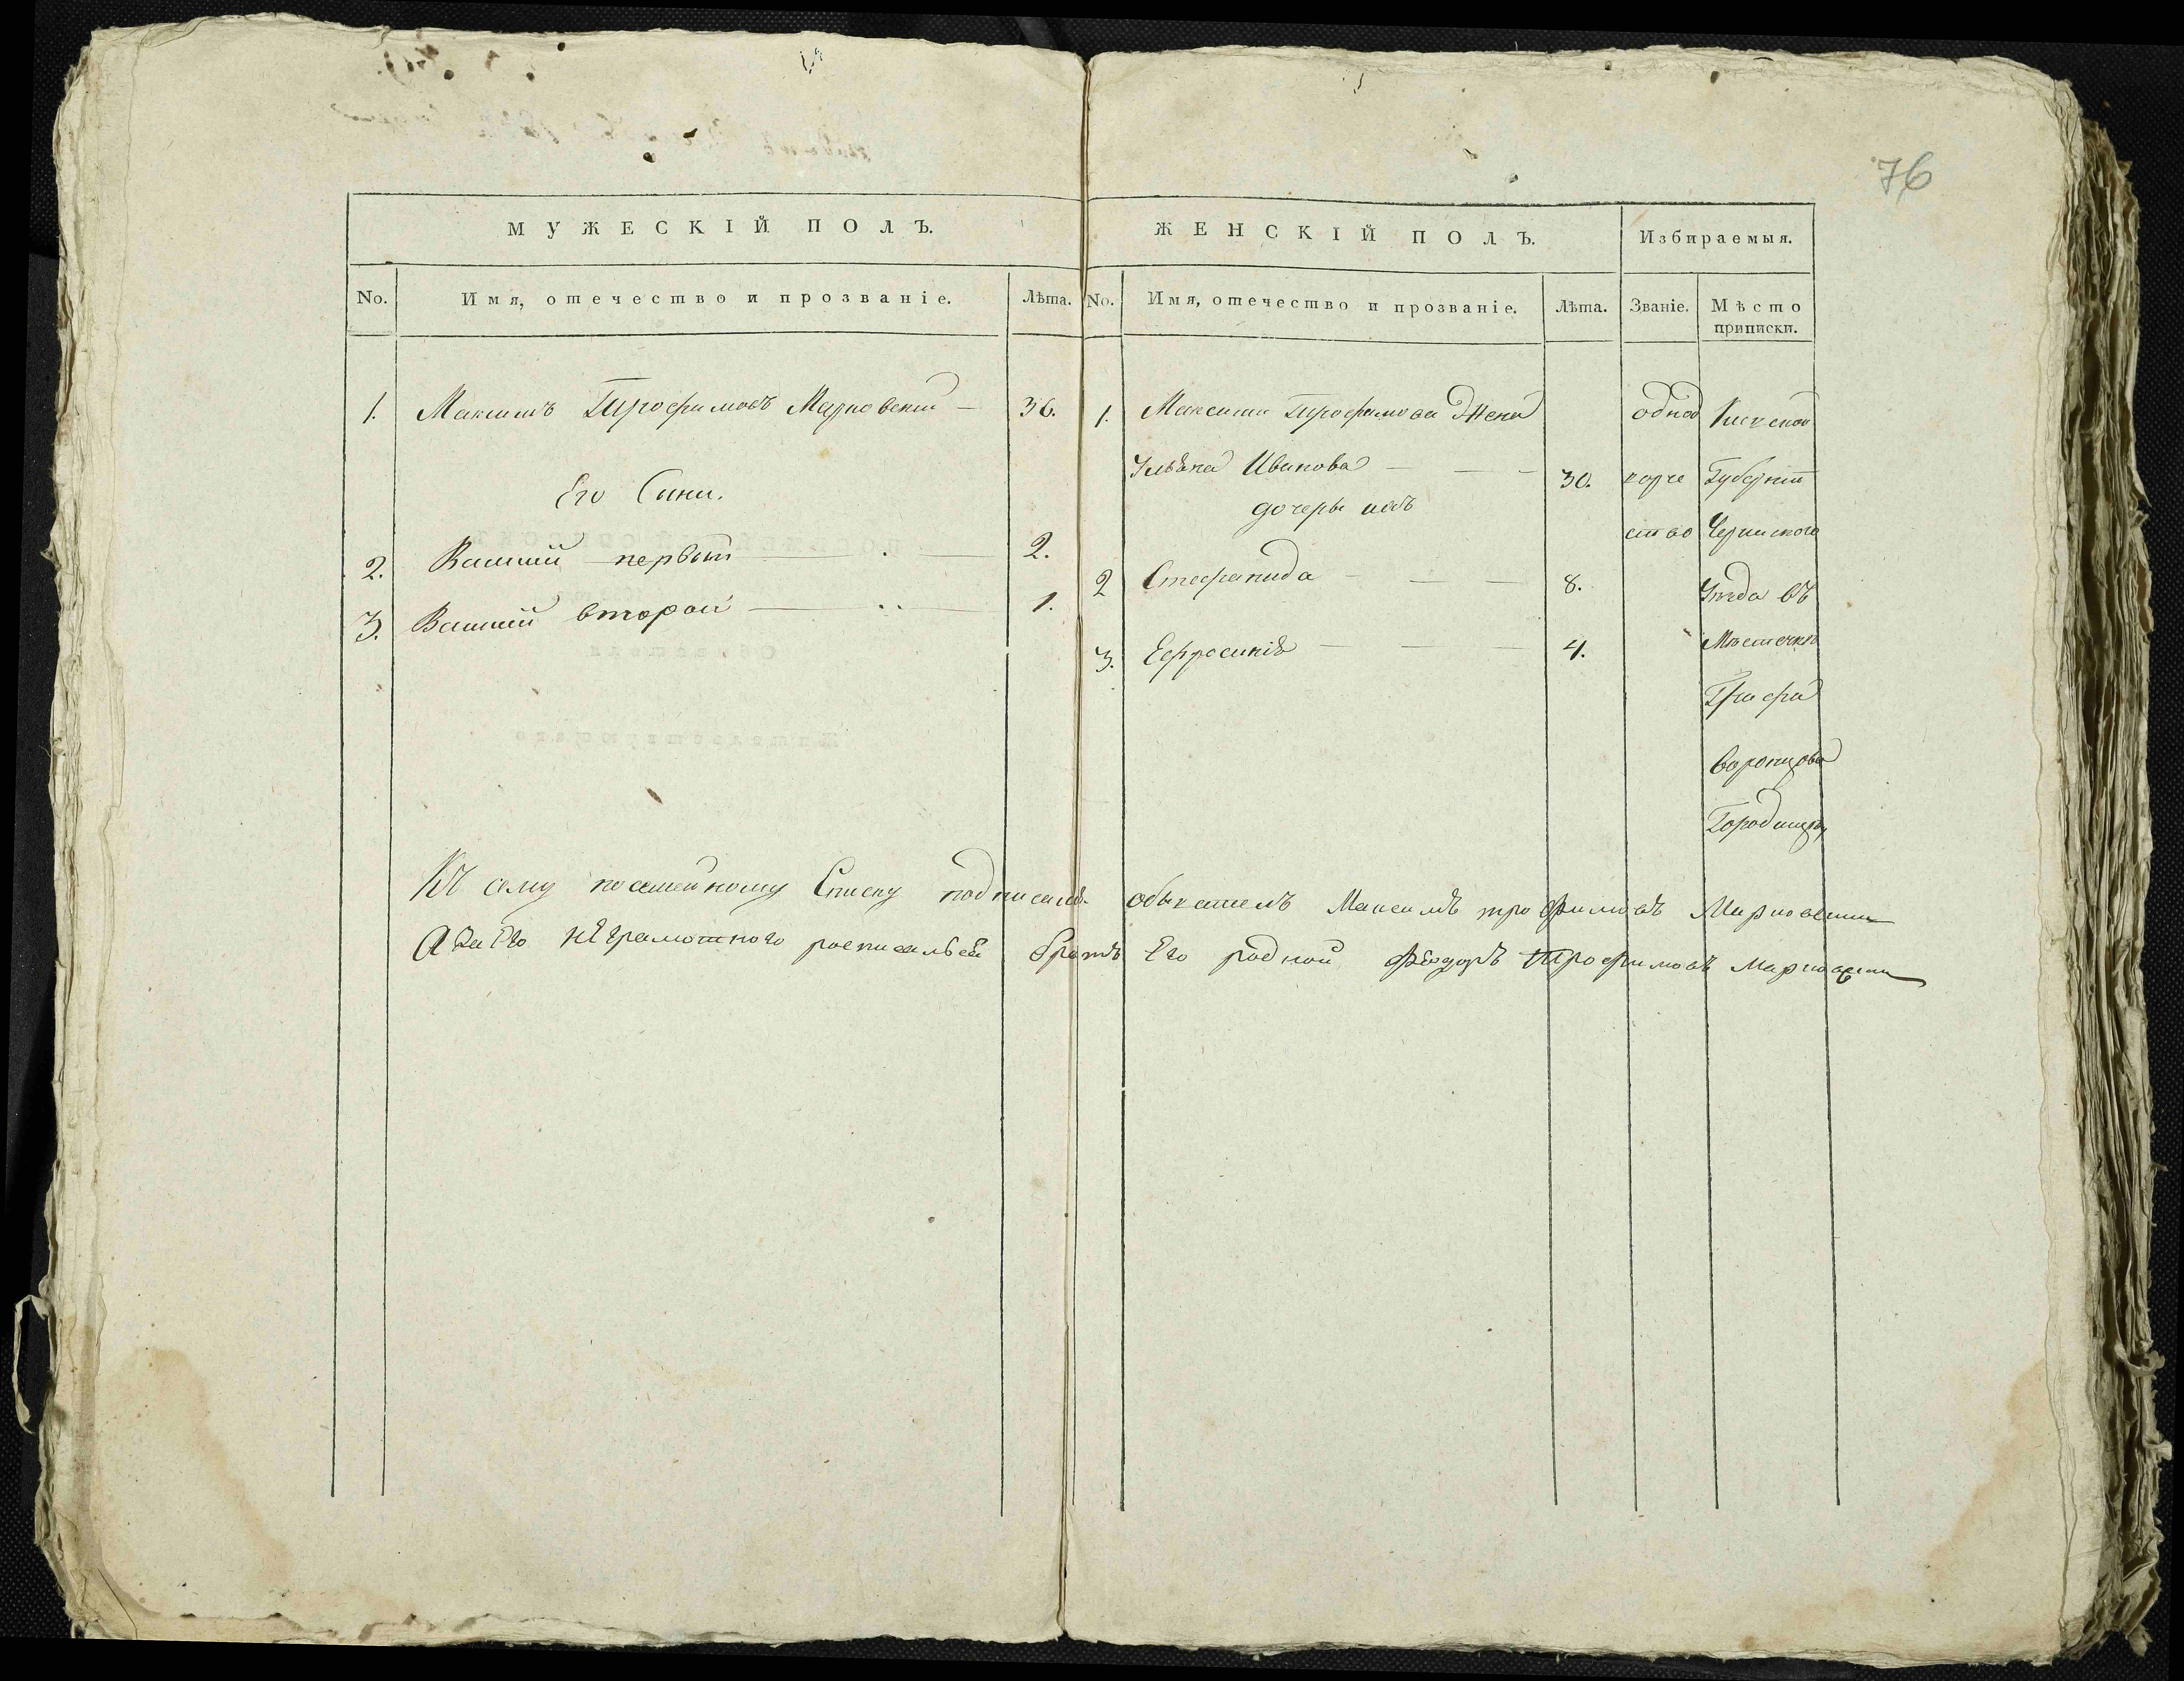 76
МУЖЕСКІЙ ПОЛЪ.
No. Имя, отечество и прозваніе. Лѣта.
1. Максимъ Трофимовъ Марковскій 36.
Его Сини.
2. Василій первый 2.
3. Василій второй 1.
ЖЕНСКІЙ ПОЛЪ. Избираемыя.
No. Имя, отечество и прозваніе. Лѣта. Званіе. Мѣсто
приписки.
1. Максима Трофимова Жена
Ивановa 30.
дочеры ихъ
2 Степанида 8.
3. Ефросинія 4.
однод
ворче
ство
Кіевской
Губерніи
Уезда въ
Мѣстечкѣ
Графа
Воронцова
Городищу
Къ сему посемейному Списку подписался обыватель Максимъ трофимовъ Марковскии
А За Его неграмотного росписалься братъ Его родной Фёдоръ Трофимовъ Марковскии